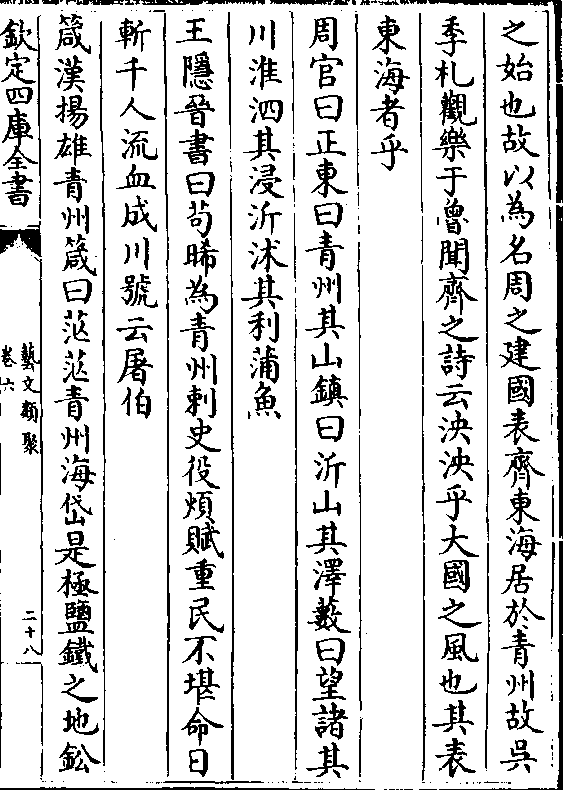 之始也故以為名周之建國表齊東海居於青州故吳
季札觀樂于魯聞齊之詩云泱泱乎大國之風也其表
東海者乎
周官曰正東曰青州其山鎮曰沂山其澤藪曰望諸其
川淮泗其浸沂沭其利蒲魚
王隱晉書曰苟晞為青州刺史役煩賦重民不堪命日
斬千人流血成川號云屠伯
箴漢揚雄青州箴曰茫茫青州海岱是極鹽鐵之地鈆
欽定四庫全書
藝文類聚
卷六
二十八